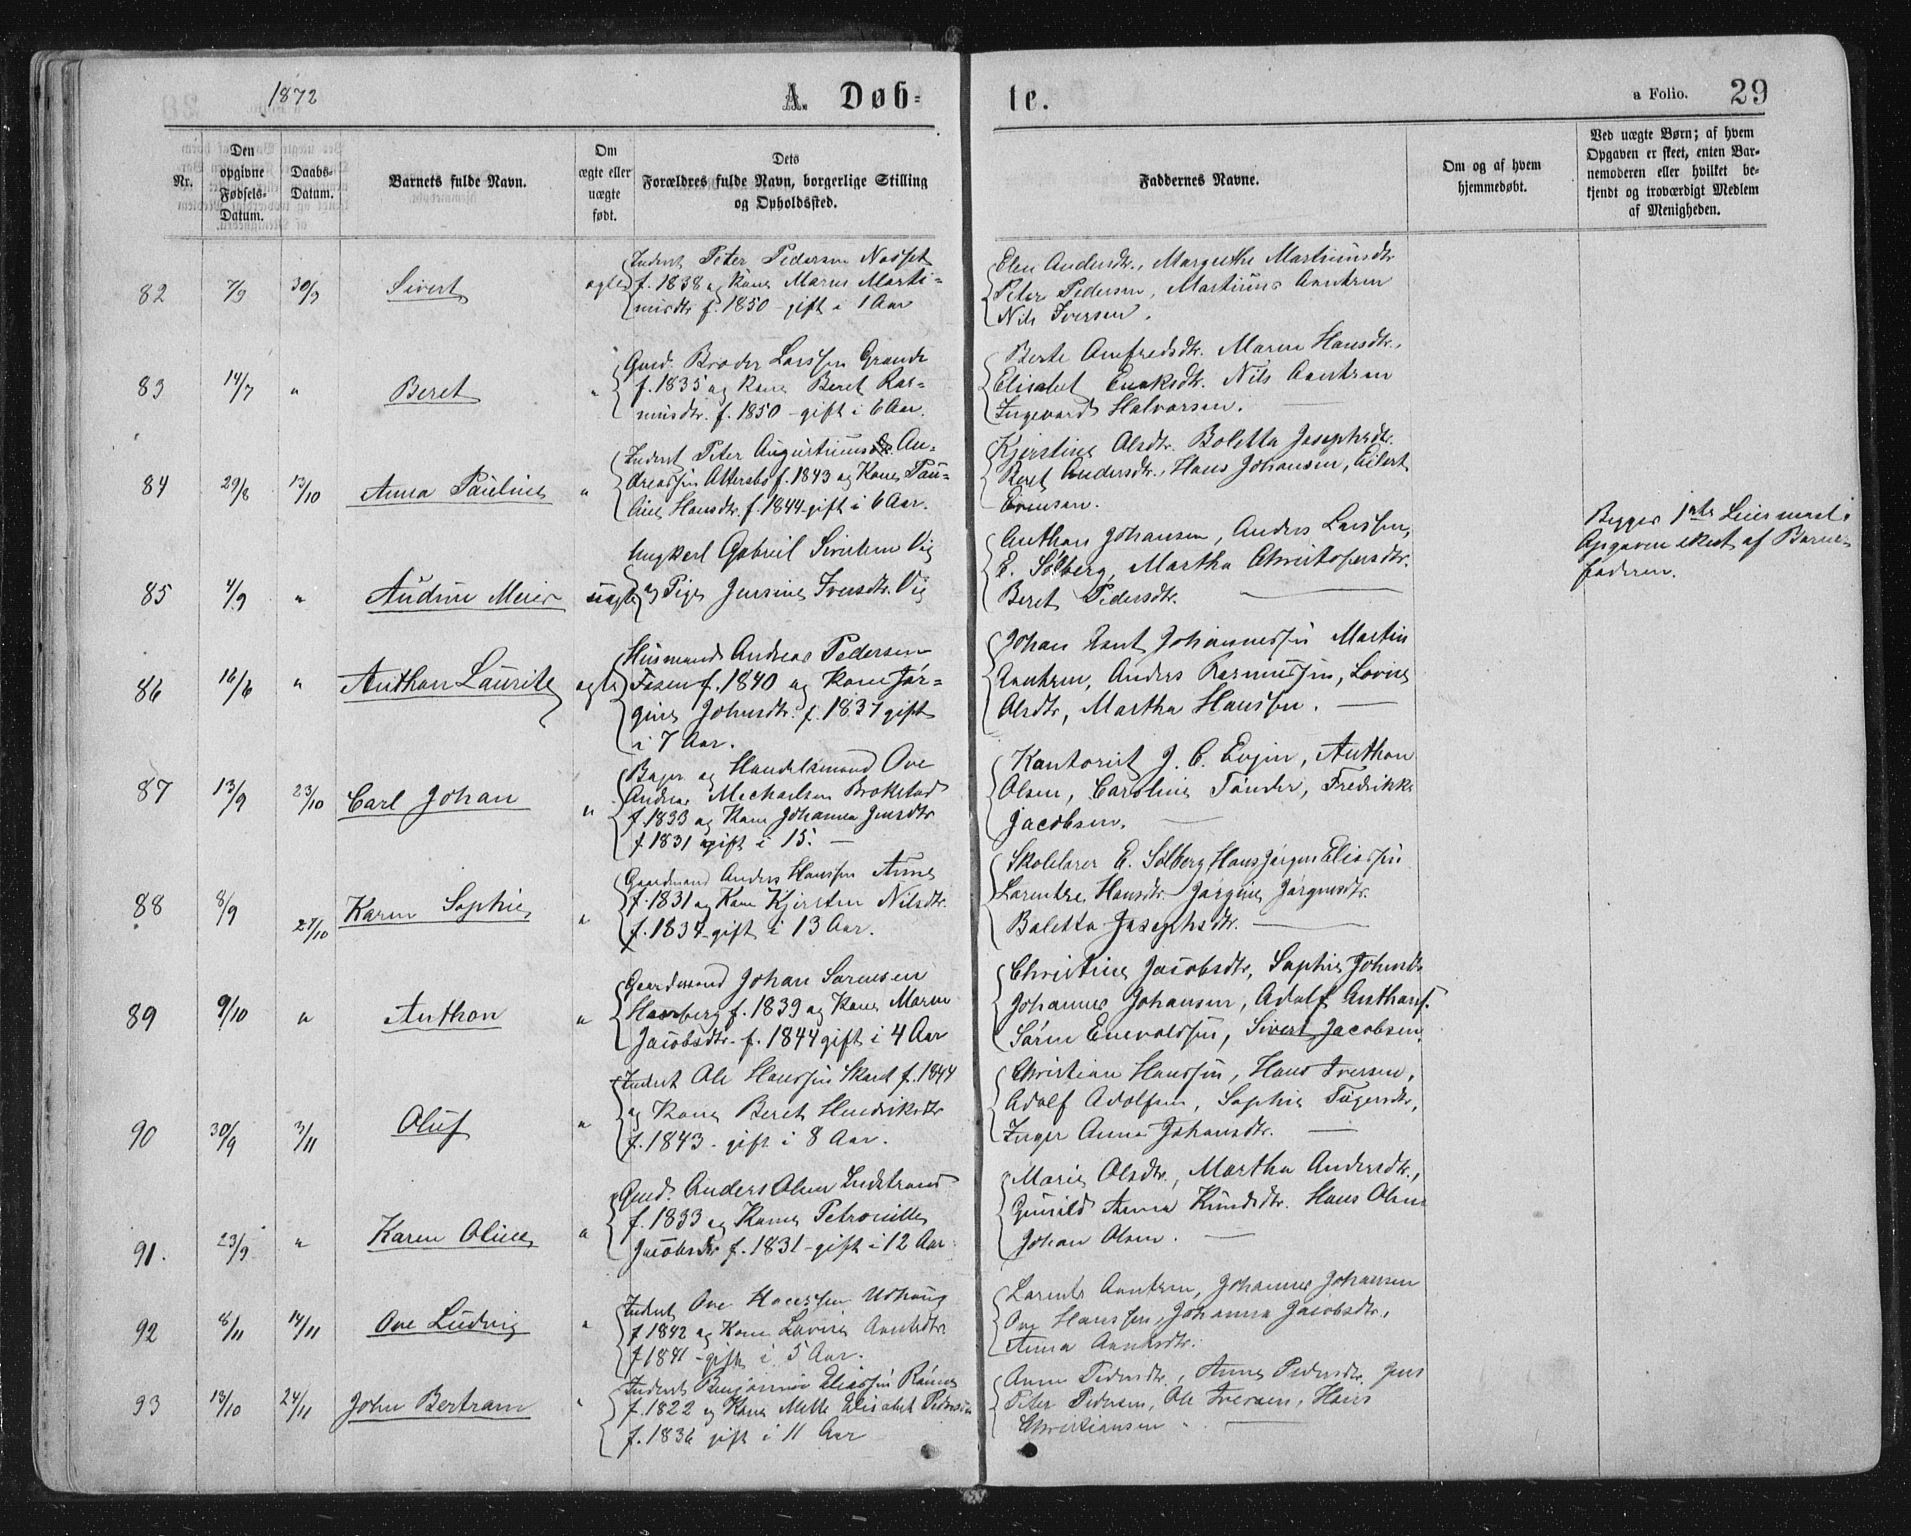 1872
A. Døb-
te.
a Folio. 29
Nr.
Den opgivne Fødsels-Datum.
Daabs-Datum.
Barnets fulde Navn.
Om ægte eller uægte født.
Dets Forældres fulde Navn, borgerlige Stilling og Opholdssted.
Faddernes Navne.
Om og af hvem hjemmedøbt.
Ved uægte Børn; af hvem Opgaven er skeet, enten Barnemoderen eller hvilket bekjendt og troværdigt Medlem af Menigheden.
82 7/9 30/9 Sivert ægte
Inderst Peter Pedersen
f. 1838 og Kone Maren Marti-
nusdtr f. 1850 - gift i 1 Aar
Elen Andersdtr., Margrethe Martinusdtr
Peter Pedersen, Martinus
Nils Iversen.
83 14/7 " Beret "
Gmd. Broder Larssen Grande
f. 1835 og Kone Beret Ras-
musdtr. f. 1850 - gift i 6 Aar.
Berte Anfredsdtr. Maren Hansdtr.
Elisabet Nils
Ingevard Halvorsen.
84 29/8 13/10 Anna Pauline "
Inderst Peter Augustinus An-
dreassen f. 1843 og Kone Pau-
line Hansdtr. f. 1844 - gift i 6 Aar.
Kjerstine Olsdtr. Boletta Josephsdtr.
Beret Andersdtr., Hans Johansen, Eilert
Evensen.
85 4/9 " Audine Meier uægte
Ungkarl Gabriel Vig
og Pige Jensine Iversdtr. Vig
Anthon Johansen, Anders Larssen,
E. Solberg, Martha Christophersdtr.
Beret Pedersdtr.
Begges 1ste Leiermaal.
Opgaven skeet af Barne-
faderen.
86 16/6 " Anthon Lauritz ægte
Husmand Andreas Pedersen
f. 1840 og Kone Jør-
gine Johnsdtr. f. 1837 gift
i 7 Aar.
Johan Johannessen Martin
Anders Rasmussen, Lovise
Olsdtr, Martha Hanssen.
87 13/9 23/10 Carl Johan "
Bager og Handelsmand Ove
Andreas Mechaelsen Brokstad
f. 1833 og Kone Johanna Jensdtr
f. 1831 gift i 15.
Kontorist J. C. Evjen, Anthon
Olsen, Caroline Tønder, Fredrikke
Jacobsen.
88 8/9 27/10 Karen Sophie "
Gaardmand Anders Hanssen
f. 1831 og Kone Kjersten Nilsdtr.
f. 1834 - gift i 13 Aar.
Skolelærer E. Solberg, Hans Jørgen Eliassen
Lorentze Hansdtr Jørgine Jørgensdtr.
Boletta Josephsdtr.
89 9/10 " Anthon "
Gaardmand Johan Sørensen
f. 1839 og Kone Maren
Jacobsdtr. f. 1844 gift i 4 Aar
Christine Jacobsdtr, Sophie Johnsdtr
Johannes Johansen, Adolf Anthons.
Søren Enevoldsen, Sivert Jacobsen.
90 30/9 3/11 Oluf "
Inderst Ole Hanssen f. 1844
og Kone Beret Hendriksdtr
f. 1843 - gift i 8 Aar.
Christian Hanssen, Hans Iversen,
Adolf Adolfsen, Sophie
Inger Anna Johansdtr.
91. 23/9 " Karen Oline "
Gmd. Anders Olsen
f. 1833 og Kone Petronille
Jacobsdtr f. 1831 - gift i 12 Aar
Marie Olsdtr., Martha Andersdtr.,
Gunild Anna Knudsdtr. Hans Olsen
Johan Olsen.
92 8/11 14/11 Ove Ludvig "
Inderst Ove Hanssen Udhaug
f 1842 og Kone Lovise
f 1841 - gift i 5 Aar.
Johannes Johansen
Ove Hanssen, Johanna Jacobsdtr,
Anna
93 13/10 24/11 John Bertram "
Inderst Benjamin Eliassen
f. 1822 og Kone Mette Elisabet
f. 1836 gift i 11 Aar
Anne Pedersdtr., Anne Pedersdtr. Jens
Peter Pedersen, Ole Iversen, Hans
Christiansen